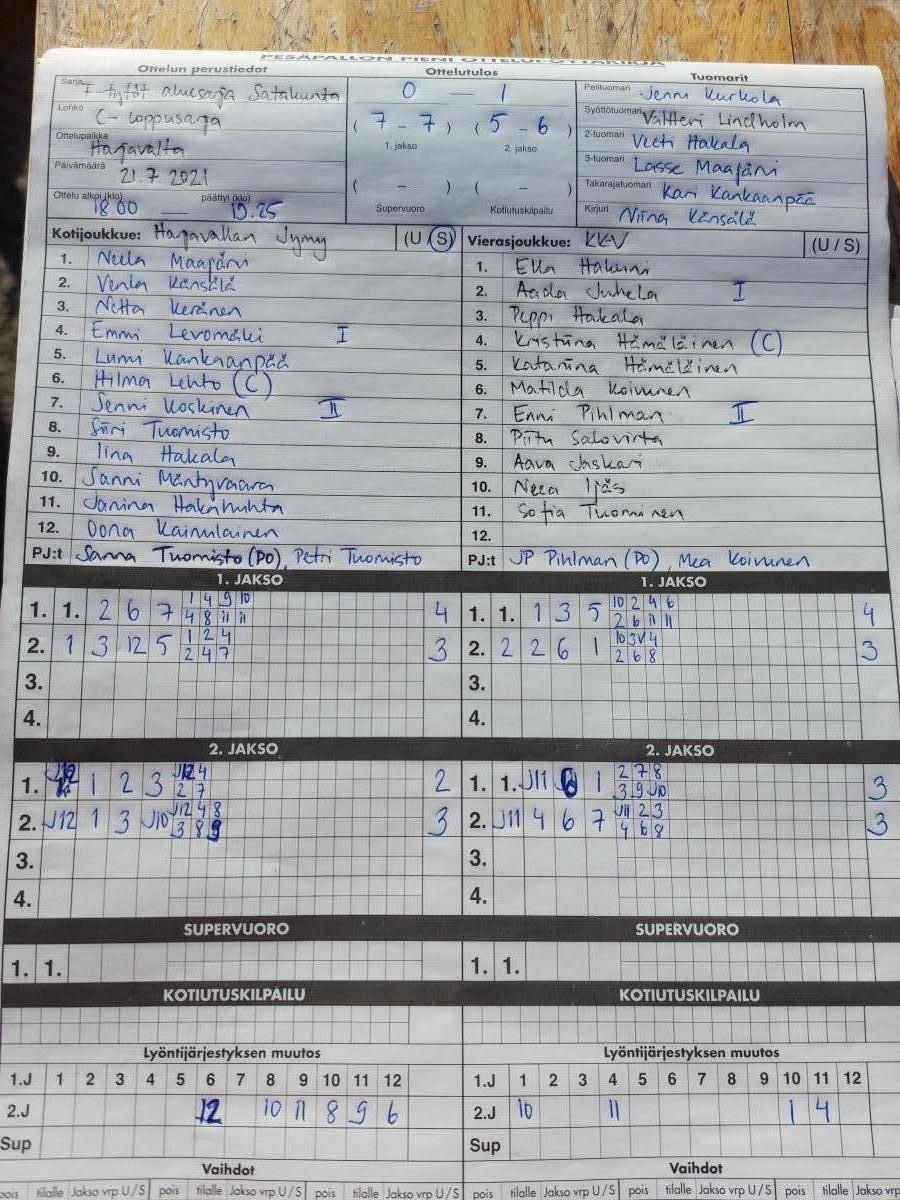 PESÄPALLON PIENI OTTELUPÖYTÄKIRJA
Ottelun perustiedot
Sarja F tytöt aluesarja Satakunta
Lohko C-loppusarja
Ottelupaikka Harjavalta
Päivämäärä 21.7.2021
Ottelu alkoi (klo) 18.00 — päättyi (klo) 19.25
Ottelutulos
0 — 1
(7 - 7) (5 - 6)
1. jakso 2. jakso
( - ) ( - )
Supervuoro Kotiutuskilpailu
Tuomarit
Pelituomari Jenni Kurkola
Syöttötuomari Valtteri Lindholm
2-tuomari Veeti Hakala
3-tuomari Lasse Maajärvi
Takarajatuomari Kari Kankaanpää
Kirjuri Niina Känsälä
Kotijoukkue: Harjavallan Jymy (U S)
1. Neela Maajärvi
2. Venla Känsälä
3. Netta Keränen
4. Emmi Levomäki I
5. Lumi Kankaanpää
6. Hilma Lehto (C)
7. Jenni Koskinen II
8. Siiri Tuomisto
9. Iina Hakala
10. Sanni Mäntyvaara
11. Janina Hakahuhta
12. Oona Kainulainen
PJ:t Sanna Tuomisto (PO), Petri Tuomisto
Vierasjoukkue: KKV (U / S)
1. Ella Hakuni
2. Aada Juhela I
3. Peppi Hakala
4. Kristiina Hämäläinen (C)
5. Katariina Hämäläinen
6. Matilda Koivunen
7. Enni Pihlman II
8. Piitu Salovirta
9. Aava Jaskari
10. Neea Ijäs
11. Sofia Tuominen
12.
PJ:t JP Pihlman (PO), Mea Koivunen
1. JAKSO
1. 1. 2 6 7 1 4 9 10 4
4 8 11 11
2. 1 3 12 5 1 2 4 3
2 4 7
3.
4.
1. JAKSO
1. 1. 1 3 5 10 2 4 6 4
2 6 11 11
2. 2 2 6 1 10 3V 4 3
2 6 8
3.
4.
2. JAKSO
1. J12 1 2 3 J12 4 2
2 7
2. J12 1 3 J10 J12 4 8 3
3 8 9
3.
4.
2. JAKSO
1. 1. J11 6 1 2 7 8 3
3 9 J10
2. J11 4 6 7 J11 2 3 3
4 6 8
3.
4.
SUPERVUORO
1. 1.
SUPERVUORO
1. 1.
KOTIUTUSKILPAILU
KOTIUTUSKILPAILU
Lyöntijärjestyksen muutos
1.J 1 2 3 4 5 6 7 8 9 10 11 12
2.J J2 10 11 8 9 6
Sup
Lyöntijärjestyksen muutos
1.J 1 2 3 4 5 6 7 8 9 10 11 12
2.J 10 11 1 4
Sup
Vaihdot
pois tilalle Jakso vrp U/S pois tilalle Jakso vrp U/S pois tilalle Jakso vrp U/S
Vaihdot
pois tilalle Jakso vrp U/S pois tilalle Jakso vrp U/S pois tilalle Jakso vrp